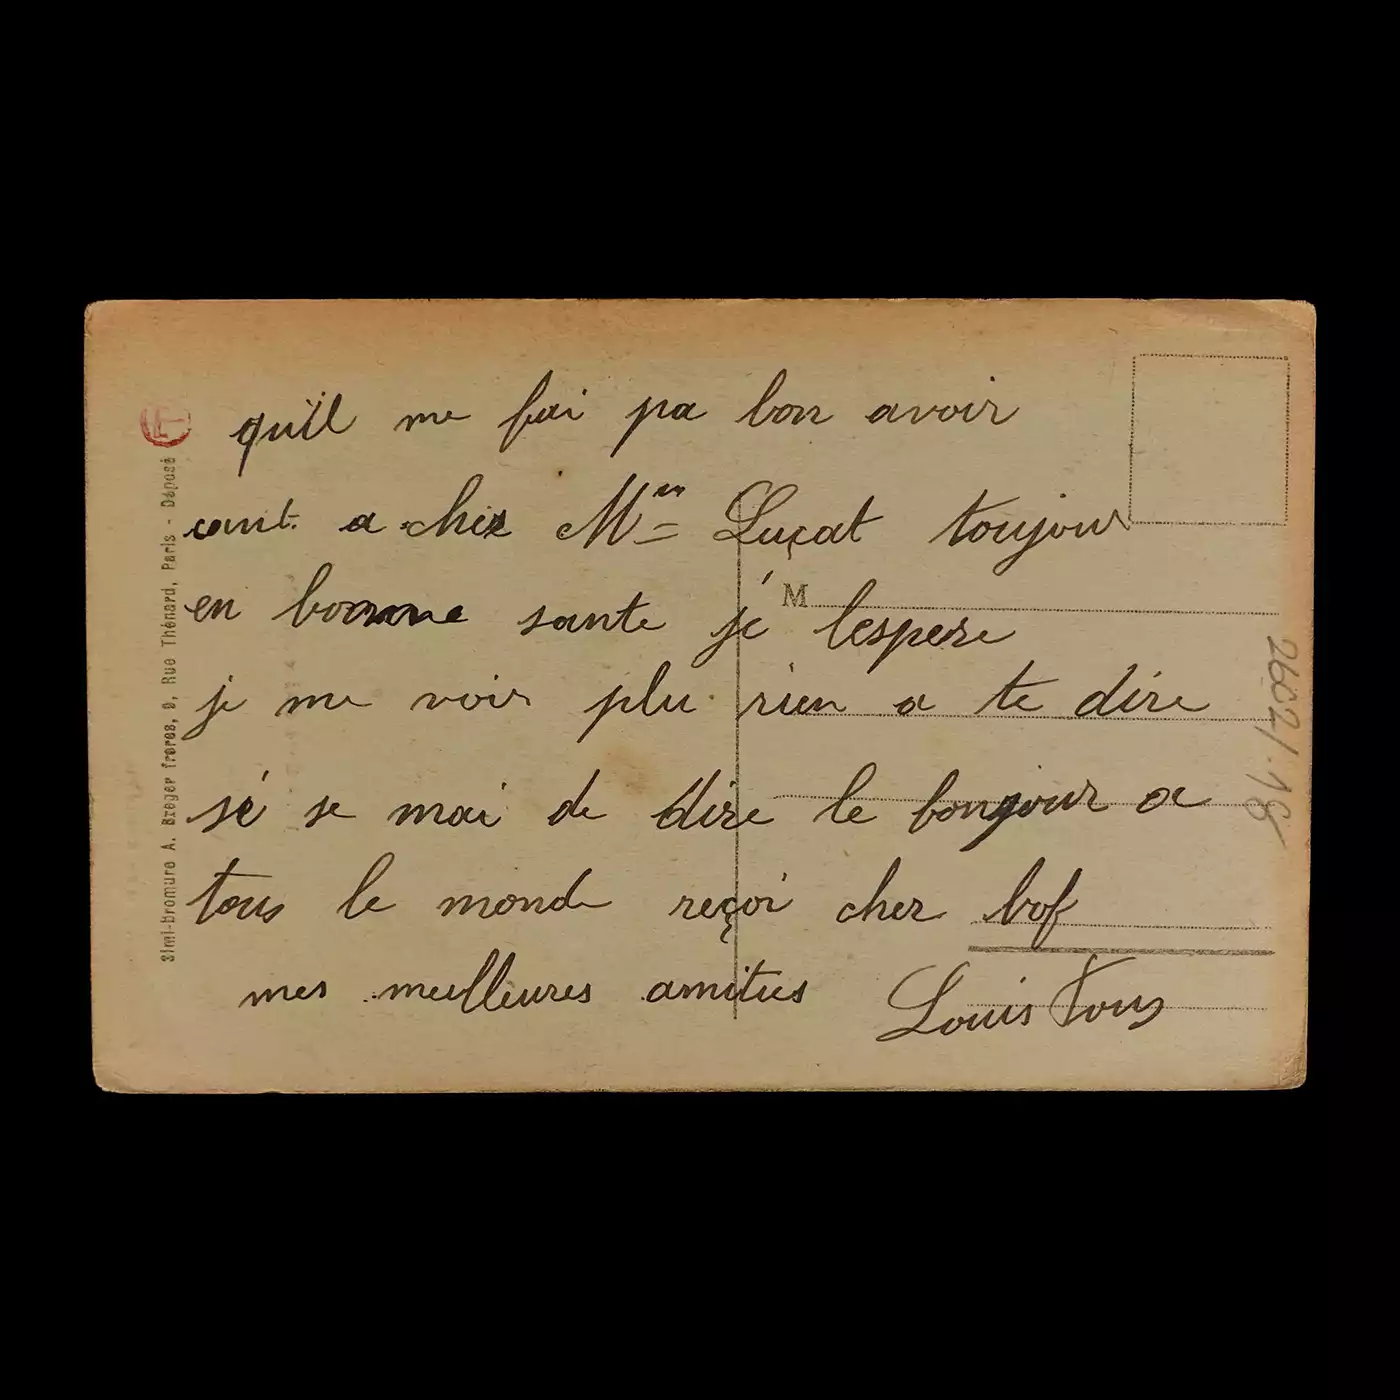 qu'il me fai pa bon avoir
cout a chez Mme Luçat toujour
en bonne sante je lespere
je me voir plu rien a te dire
sé se mai de dire le bongour a
tous le monde reçoi cher bof
mes meilleures amities Louis
M
Simi-Bromure A. Breger frères, 9, Rue Thénard, Paris - Déposé